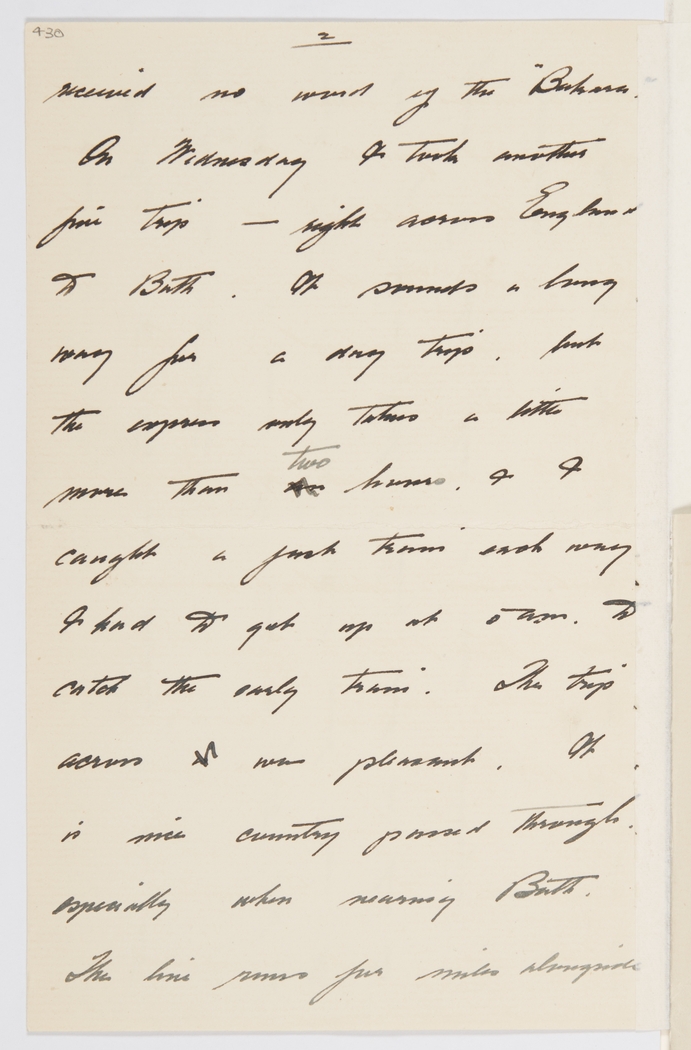 430
2
received no word of the "Bukara.
On Wednesday I took another
fine trip — right across England
to Bath. It sounds a long
way for a day trip, but
the express only takes a little
two
more than hours, & I
caught a fast train each way
I had to get up at 5 am. to
catch the early train. The trip
across was pleasant. It
is nice country passed through,
especially when nearing Bath.
The line runs for miles alongside